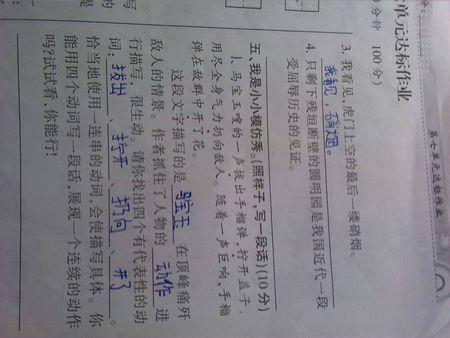 第七单元达标作业
单元达标作业
分钟 100分)
3. 我看见,虎门上空的最后一缕硝烟。
我看见,硝烟。
4. 只剩下残垣断壁的圆明园是我国近代一段
受屈辱历史的见证。
五、我是小小模仿秀。(照样子,写一段话)(10分)
1. 马宝玉嗖的一声拔出手榴弹,拧开盖子,
用尽全身气力扔向敌人。随着一声巨响,手榴
弹在敌群中开了花。
这段文字描写的是 马宝玉 在顶峰痛歼
敌人的情景。作者抓住了人物的 动作 进
行描写,很生动。请你找出四个有代表性的动
词: 拔出 、 拧开 、 扔向 、 开了 。
恰当地使用一连串的动词,会使描写具体。你
能用四个动词写一段话,展现一个连续的动作
吗?试试看,你能行!